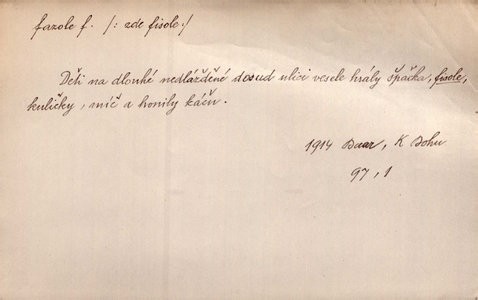 fazole f. /: zde fisole :/
Děti na dlouhé nedlážděné dosud ulici vesele hrály špačka, fisole,
kuličky, míč a honily káču.
1914 Baar, K Bohu
97, 1